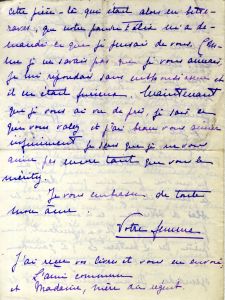 cette pièce-là que était alors en bitte-
raves, que votre pauvre Félix m'a de-
mandé ce que je pensais de vous. Com-
me je ne savais pas que je vous aimais,
je lui répondais sans enthousiasme et
il en était furieux. Maintenant
que je vous ai vu de près, je sais ce
que vous valez et j'ai beau vous aimer
infiniment je sens que je ne vous
aime pas encore tant que vous le
méritez.
Je vous embrasse de toute
mon âme.
Votre femme
J'ai reçu vos livres et vous en envoie
L'ami commun
et Madeine, mère du régent.